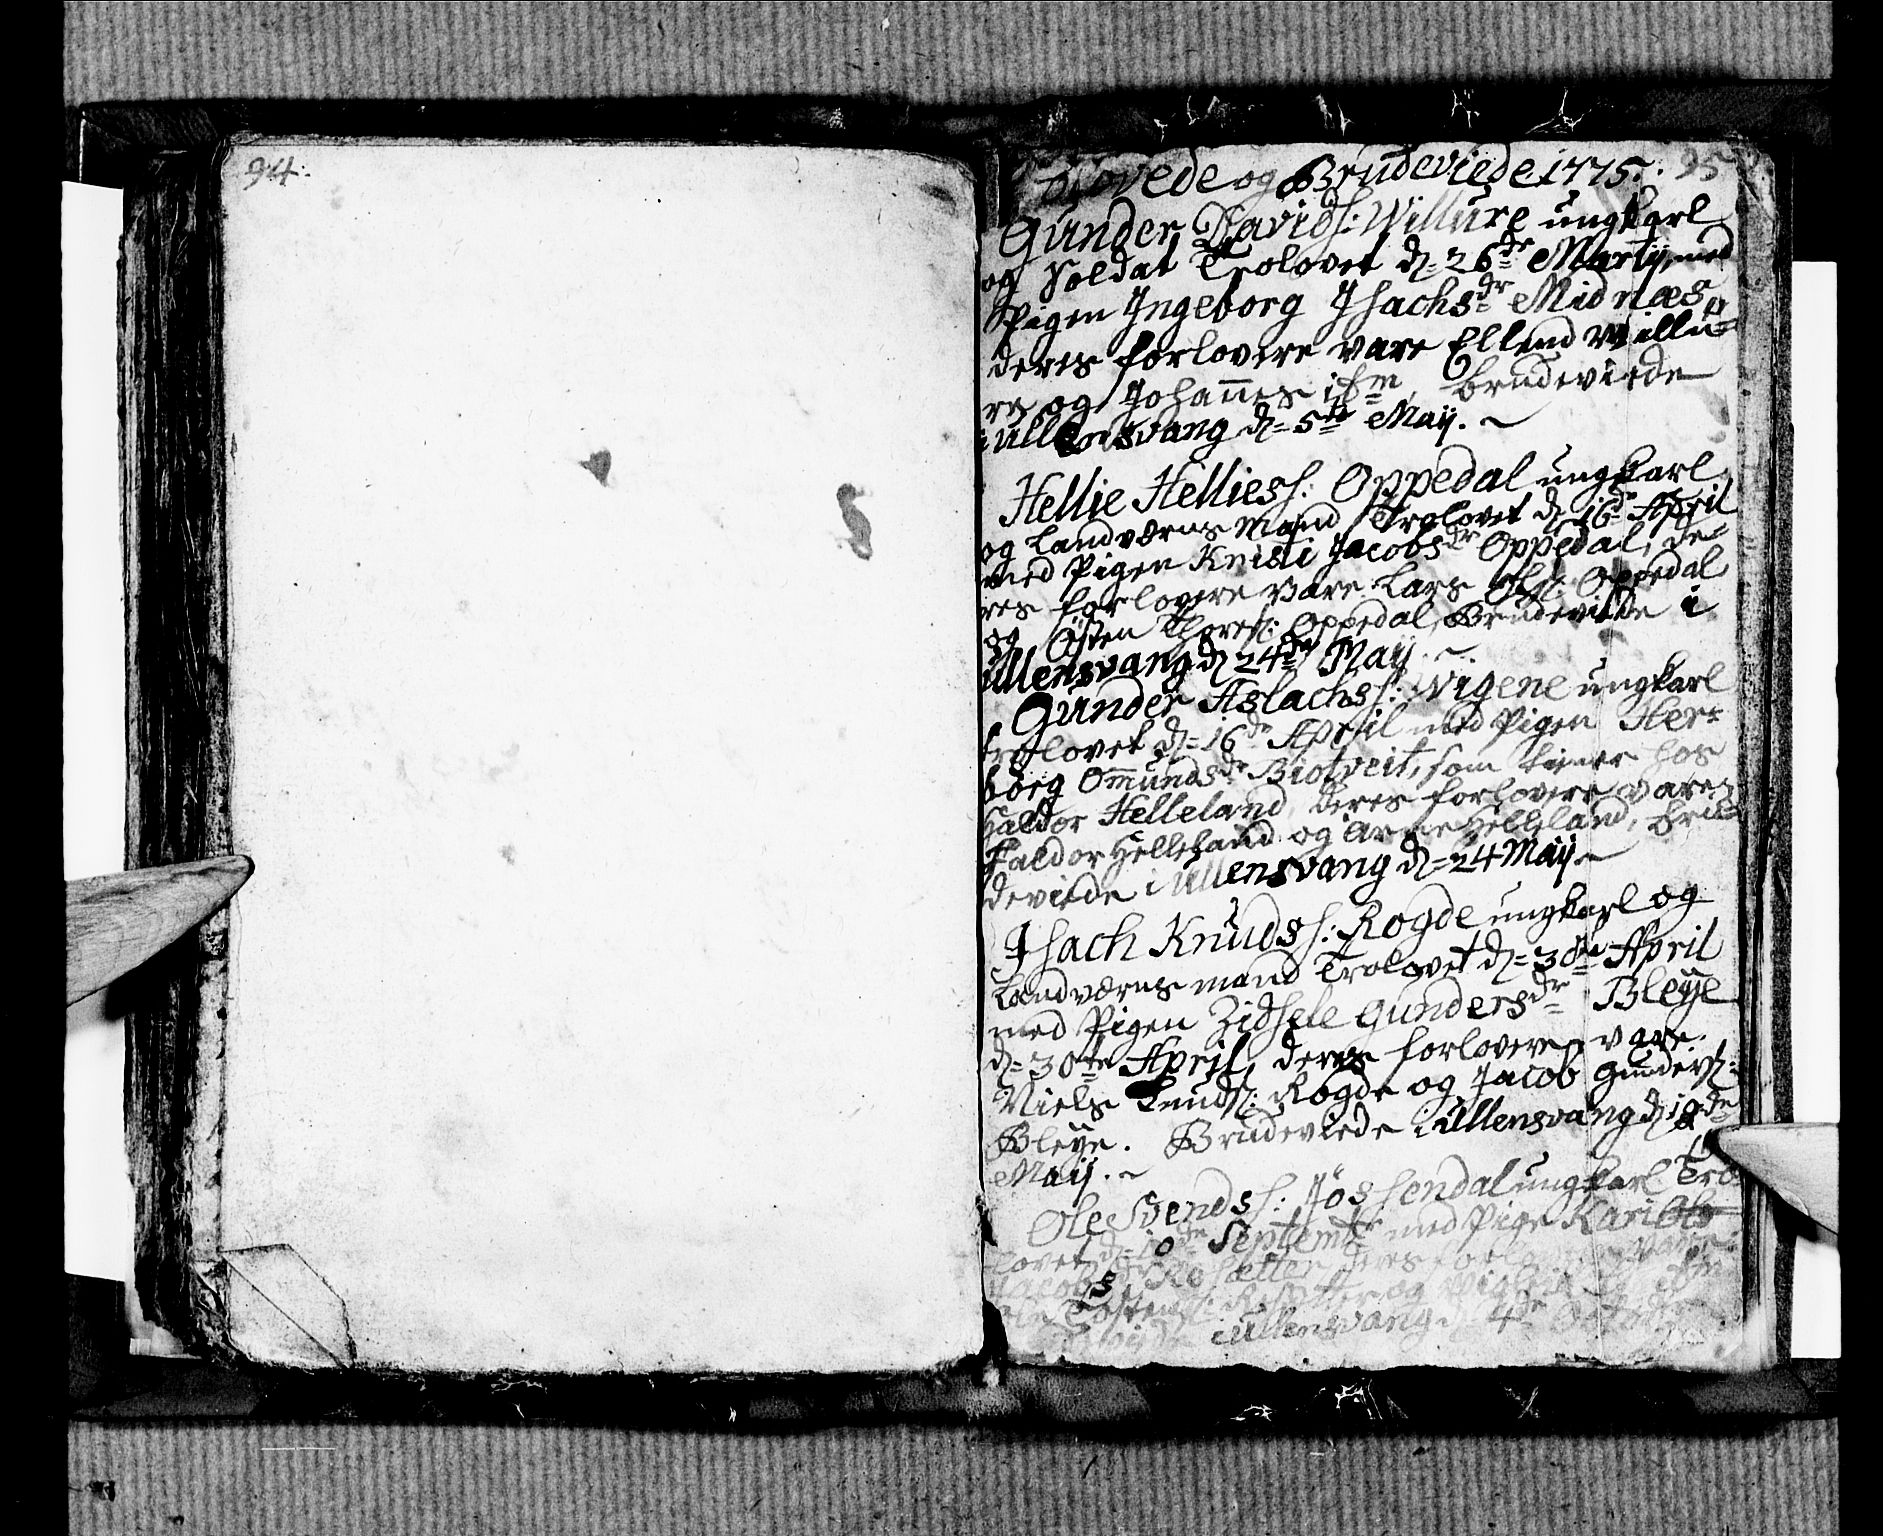 94.
Trolovede og Brudeviede 1775. 95
Gunder Davids: Willure ungkarl
og Soldat Trolovet d= 26de Martij, med
Pigen Ingeborg Isachsdr Midnæs,
deres forlovere vare Ellend Willu=
re og Johannes ibm, brudeviede
i Ullensvang d= 5te Maij. ~
Hellie Hellies: Oppedal ungkarl
og Landværns Mand Trolovet d 16de April
med Pigen Kristi Jacobsdr Oppedal, de=
res forlovere vare Lars Oppedal
og Østen Thores: Oppedal, Brudeviede i
Ullensvang d 24de Maij. ~
Gunder Aslachs: Wigene ungkarl
trolovet d= 16de April med Pigen Her=
borg Omundsdr Biotveit, som tiener hos
Haldor Helleland, deres forlovere vare
Haldor Helleland og Arne Helleland, bru=
deviede i Ullensvang d= 24 Maij ~
Isach Knuds: Rogde ungkarl og
Landværns mand Trolovet d= 30te April
med Pigen Zidsele Gundersdr Bleije
d= 30te April, deres forlovere vare
Niels Knuds: Rogde og Jacob Gunders:
Bleije. Brudeviede i Ullensvang d 19de
Maij. ~
Ole Svends: Jøssendal ungkarl Tro
lovet d= Septembr med Pige Kari Ols
Jacobsdr Rosætter, deres forlovere vare
Ole Tostens: Resætter og
i Ullensvang d= 4de Octobr